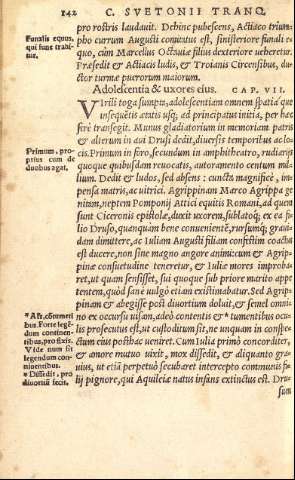 142
C. SVETONII TRANQ.
pro rostris laudauit. Dehinc pubescens, Actiaco trium-
pho currum Augusti comitatus est, sinisteriore funali e-
quo, cùm Marcellus Octauiæ filius dexteriore ueheretur.
Præsedit & Actiacis ludis, & Troianis Circensibus, du-
ctor turmæ puerorum maiorum.
Adolescentia & uxores eius. CAP. VII.
Virili toga sumpta, adolescentiam omnem spatiúmque
insequētis ætatis usque ad principatus initia, per hæc
ferè transegit. Munus gladiatorium in memoriam patris
& alterum in aui Drusi dedit, diuersis temporibus ac lo-
cis. Primum in foro, secundum in amphitheatro, rudiarijs
quoque quibusdam reuocatis, autoramento centum mil-
lium. Dedit & ludos, sed absens: cuncta magnificè, im-
pensa matris, ac uitrici. Agrippinam Marco Agrippa ge-
nitam, neptem Pomponij Attici equitis Romani, ad quem
sunt Ciceronis epistolæ, duxit uxorem, sublatóque ex ea fi-
lio Druso, quanquam bene conuenientē, rursúmque graui-
dam dimittere, ac Iuliam Augusti filiam confestim coactus
est ducere, non sine magno angore animi: cum & Agrip-
pinæ consuetudine teneretur, & Iuliæ mores improba-
ret, ut quam sensisset, sui quoque sub priore marito appe-
tentem, quòd sanè uulgò etiam existimabatur. Sed Agrip-
pinam & abegisse post diuortium doluit, & semel omni-
no ex occursu uisam, adeò contentis & * tumentibus oculis
prosecutus est, ut custoditum sit, ne unquam in conspe-
ctum eius posthac ueniret. Cum Iulia primò concorditer,
& amore mutuo uixit, mox dissedit, & aliquanto gra-
uius, ut etiā perpetuò secubaret intercepto communis fi-
lij pignore, qui Aquileiæ natus infans extinctus est. Dru-
sum
Funalis equus,
qui fune trahi-
tur.
Primum, pro-
prius cum de
duobus agat.
* Alt, cōtuenti
bus. Forte legē-
dum continen-
tibus, pro fixis.
Vide num sit
legendum con-
niuentibus.
* Dissedit, pro
diuortiū fecit.